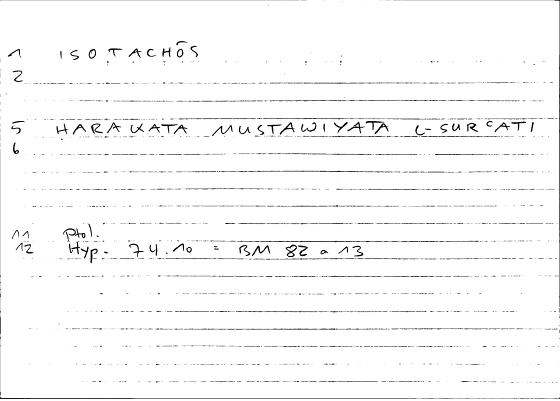 1 ISOTACHŌS
2
5 HARAKATA MUSTAWIYATA L-SURʿATI
6
11 Ptol.
12 Hyp. 74.10 = BM 82 a 13